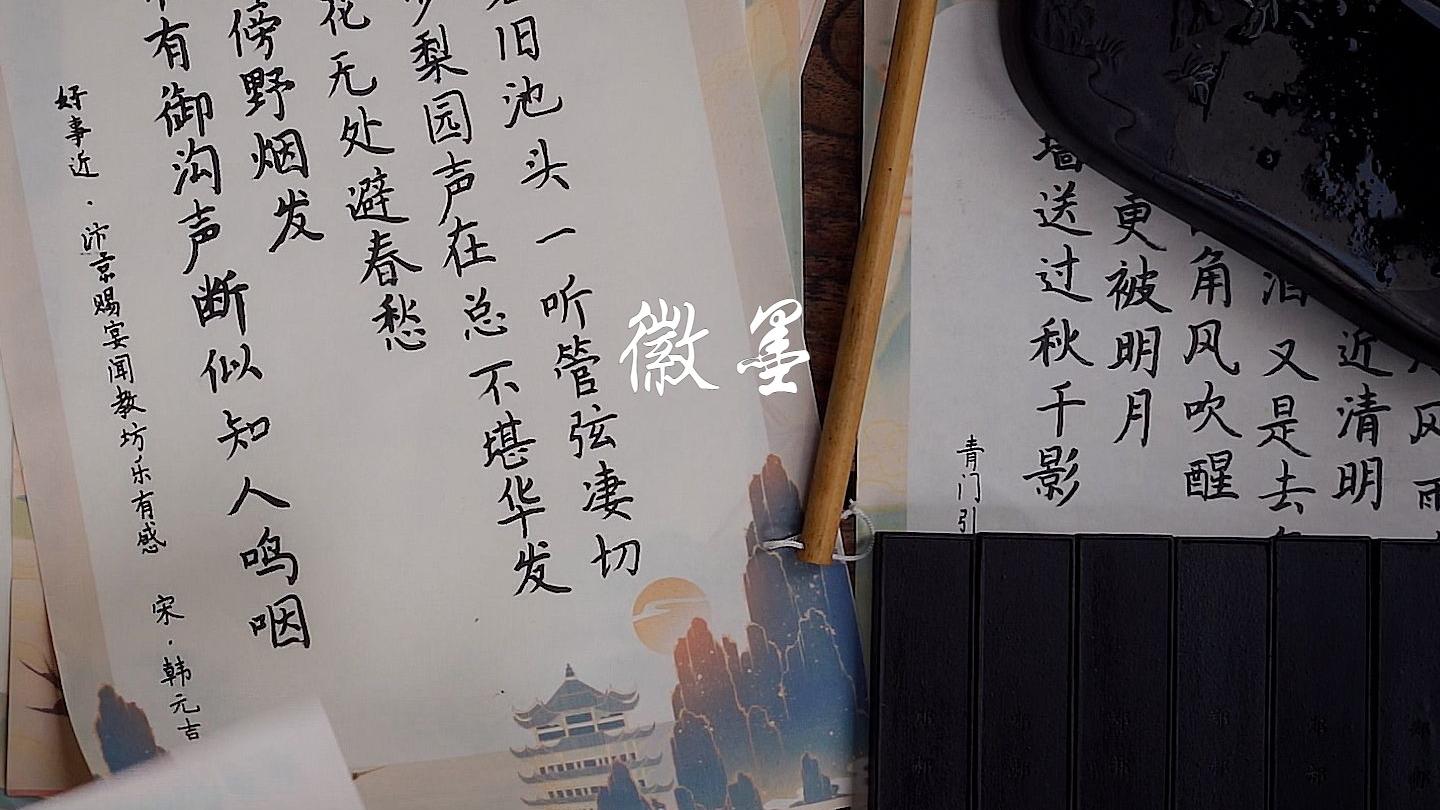 旧池头一听管弦凄切
梨园声在总不堪华发
花无处避春愁
傍野烟发
有御沟声断似知人鸣咽
好事近·汴京赐宴闻教坊乐有感 宋·韩元吉
徽墨
风雨
近清明
酒又是去
角风吹醒
更被明月
墙送过秋千影
青门引